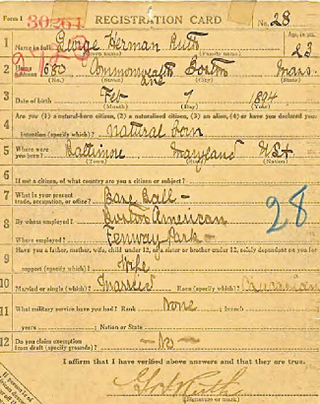 Form 1 30261 REGISTRATION CARD No. 28
1 Name in full George Herman Ruth Age, in yrs. 23
2 Home Address 680 Commonwealth Ave Boston Mass.
(No.) (Street) (City) (State)
3 Date of birth Feb 7 1894
(Month) (Day) (Year)
4 Are you (1) a natural-born citizen, (2) a naturalized citizen, (3) an alien, (4) or have you declared your
intention (specify which)? Natural born
5 Where were you born? Baltimore Maryland USA
(Town) (State) (Nation)
6 If not a citizen, of what country are you a citizen or subject?
7 What is your present trade, occupation, or office? Base Ball -
8 By whom employed? Boston American
Where employed? Fenway Park -
28
9 Have you a father, mother, wife, child under 12, or a sister or brother under 12, solely dependent on you for
support (specify which)? Wife
10 Married or single (which)? Married Race (specify which)? Caucasian
11 What military service have you had? Rank None ; branch
years ; Nation or State
12 Do you claim exemption from draft (specify grounds)? - No -
I affirm that I have verified above answers and that they are true.
G H Ruth
(Signature or mark)
If person is of